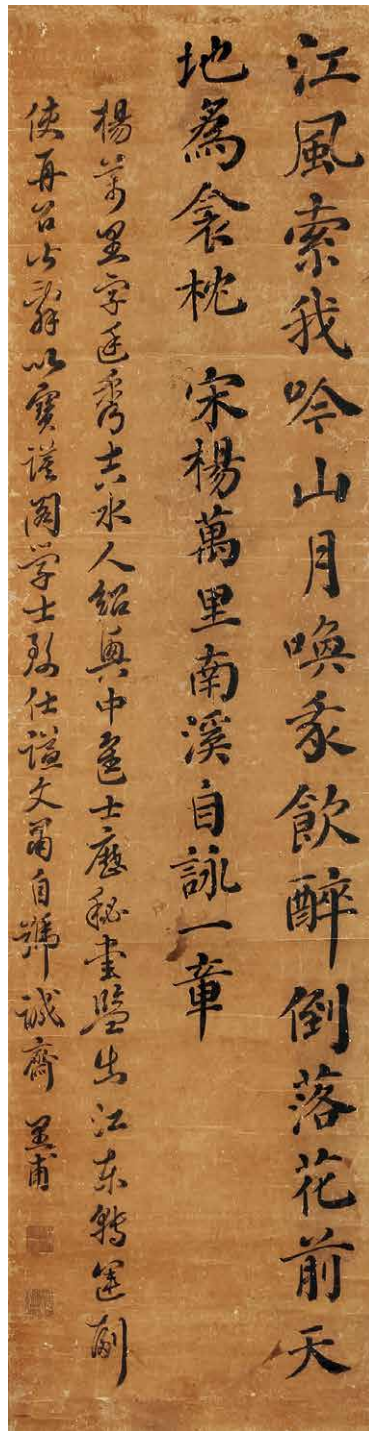 江風索我吟山月喚我飲醉倒落花前天
地爲衾枕 宋楊萬里南溪自詠一章
楊萬里字廷秀吉水人紹興中進士歷秘書監出江東轉運副
使再召皆辭以寶謨閣学士致仕謚文節自號誠齋 甫